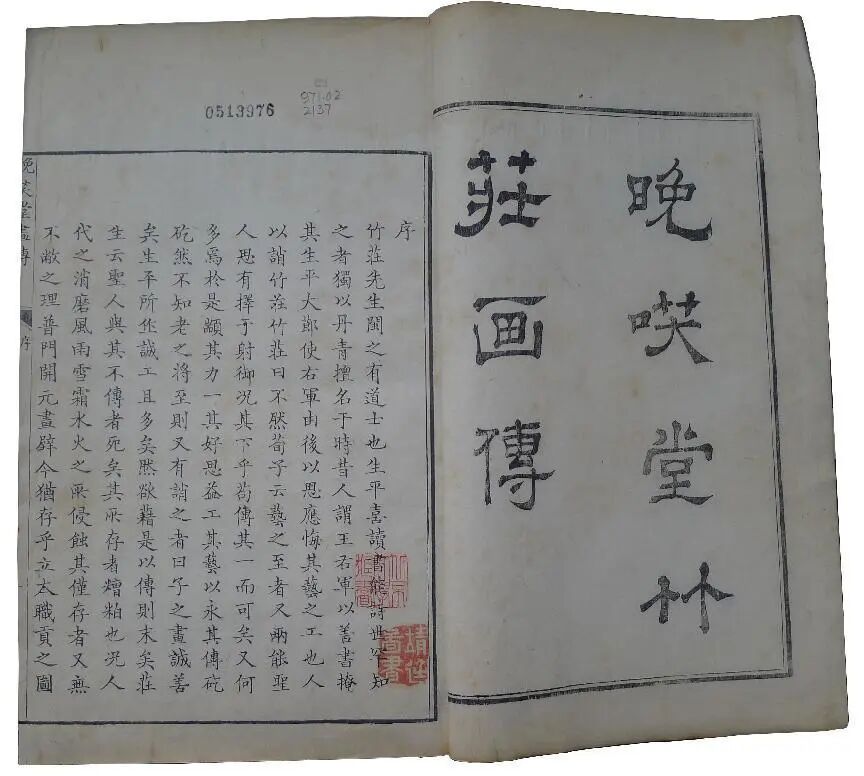 晚咲堂竹
莊画傳
0513976
971.02
2137
序
竹莊先生閩之有道士也生平喜讀書能詩世罕知
之者獨以丹青擅名于時昔人謂王右軍以善書掩
其生平大鄭使右軍由後以思應悔其藝之工也人
以誚竹莊竹莊曰不然荀子云藝之至者又兩能聖
人思有擇于射御况其下乎苟傳其一而可矣又何
多爲於是顓其力一其好思益工其藝以永其傳矻
矻然不知老之將至則又有誚之者曰子之畫誠善
矣生平所作誠工且多矣然欲藉是以傳則末矣莊
生云聖人與其不傳者死矣其所存者糟粕也况人
代之消磨風雨雪霜水火之所侵蝕其僅存者又無
不敝之理普門開元畫壁今猶存乎立太職貢之圖
晚咲堂畫傳
序